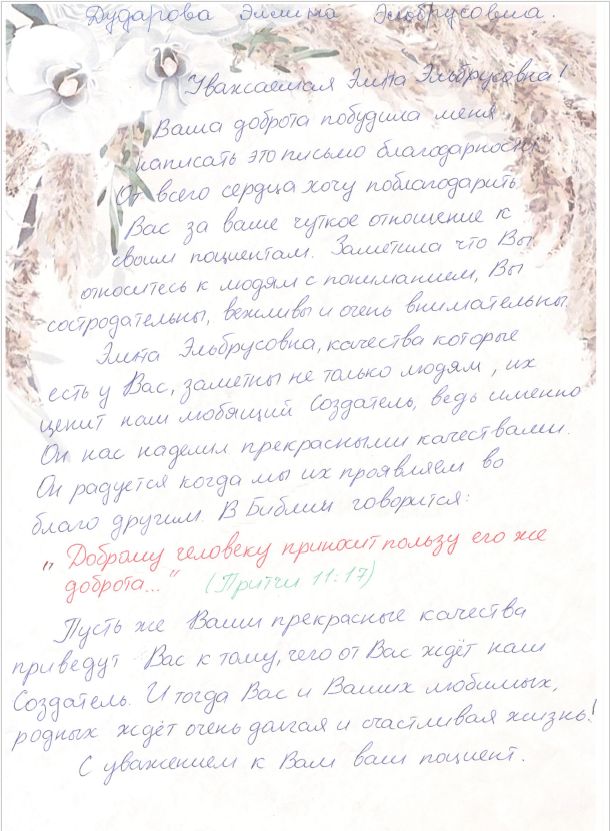 Дударова Элина Эльбрусовна.
Уважаемая Элина Эльбрусовна!
Ваша доброта побудила меня
написать это письмо благодарности
От всего сердца хочу поблагодарить
Вас за ваше чуткое отношение к
своим поциентам. Заметила что Вы
относитесь к людям с пониманием, Вы
состродательны, вежливы и очень внимательны.
Элина Эльбрусовна, качества которые
есть у Вас, заметны не только людям, их
ценит наш любящий Создатель, ведь именно
Он нас наделил прекрасными качествами.
Он радуется когда мы их проявляем во
благо другим. В Библии говорится:
„Доброму человеку приносит пользу его же
доброта..." (Притчи 11:17)
Пусть же Ваши прекрасные качества
приведут Вас к тому, чего от Вас ждёт наш
Создатель. И тогда Вас и Ваших любимых,
родных ждёт очень долгая и счастливая жизнь!
С уважением к Вам ваш поциент.